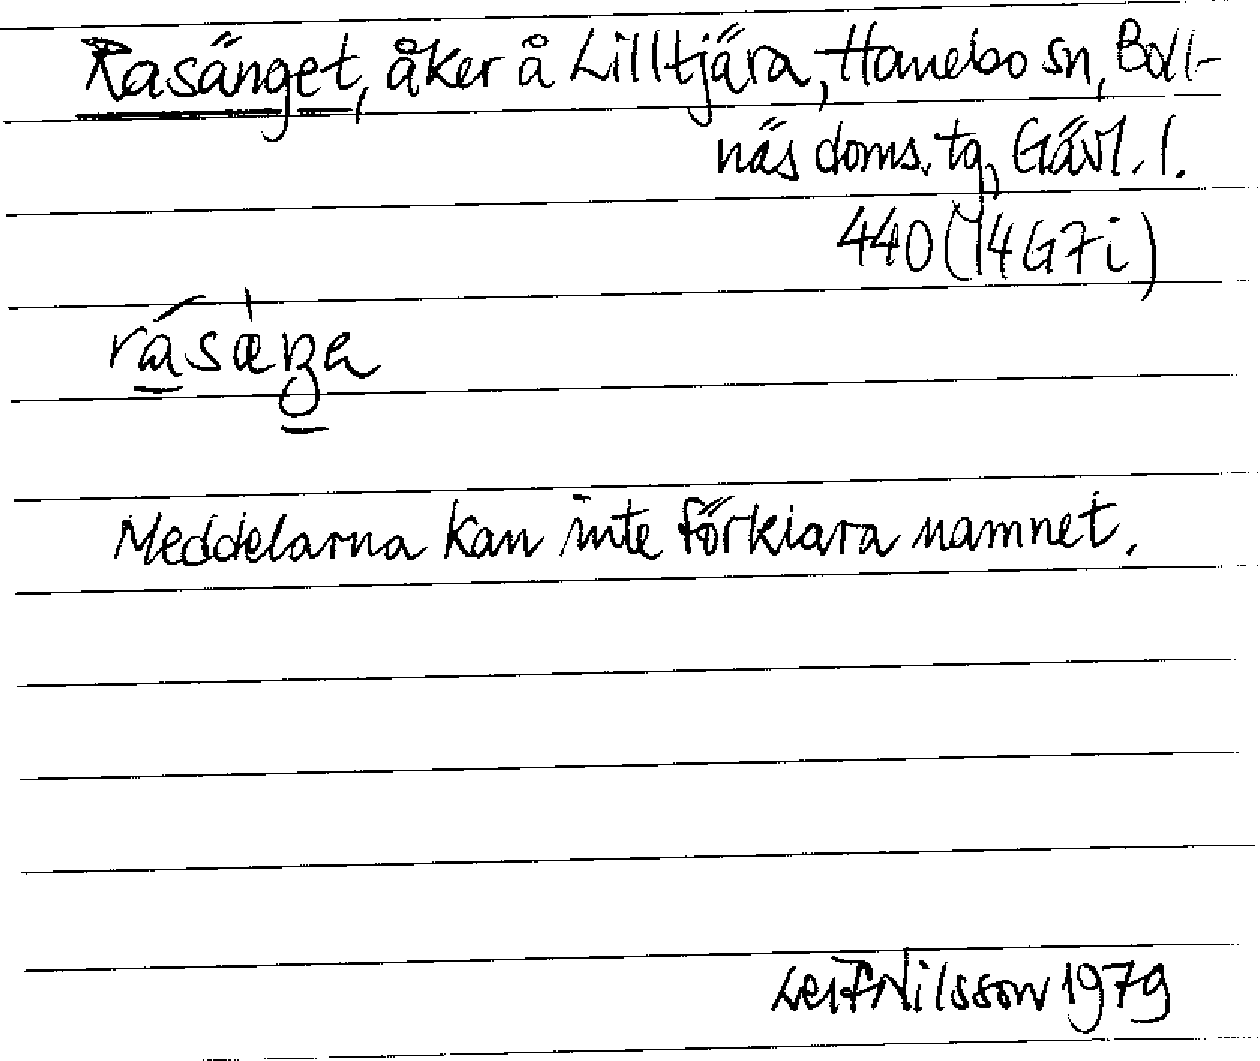 Rasänget, åker å Lilltjära, Hanebo sn, Boll-
näs doms. tg, Gävl. l.
440 (14G7i)
Meddelarna kan inte förklara namnet.
Leif Nilsson 1979